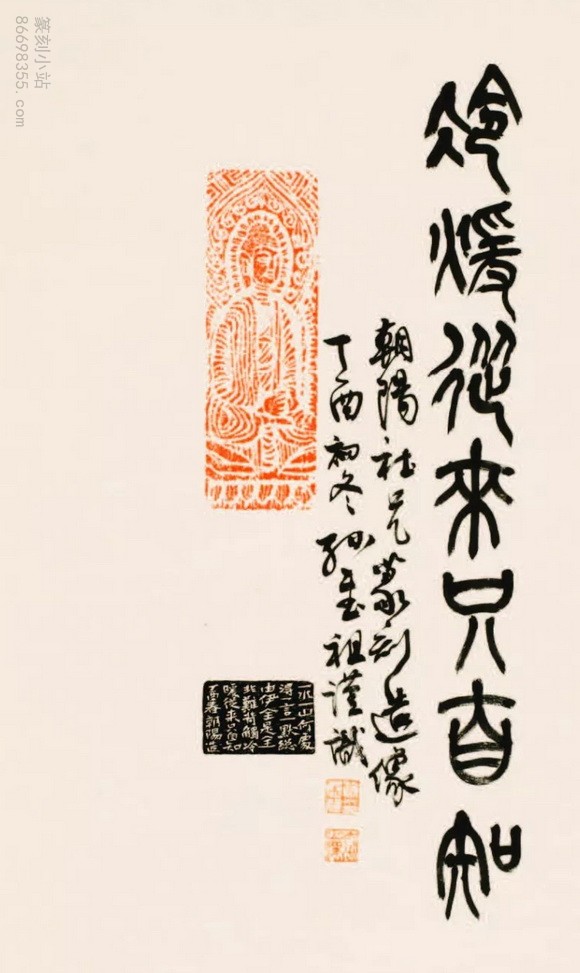 冷煖從來只自知
朝陽社兄篆刻造像
丁酉初冬孫重祖謹識
一水一山何處
得一言一默總
由伊全是全
非難背觸冷
暖從來只自知
酉春朝陽造
篆刻小站
86698355.com